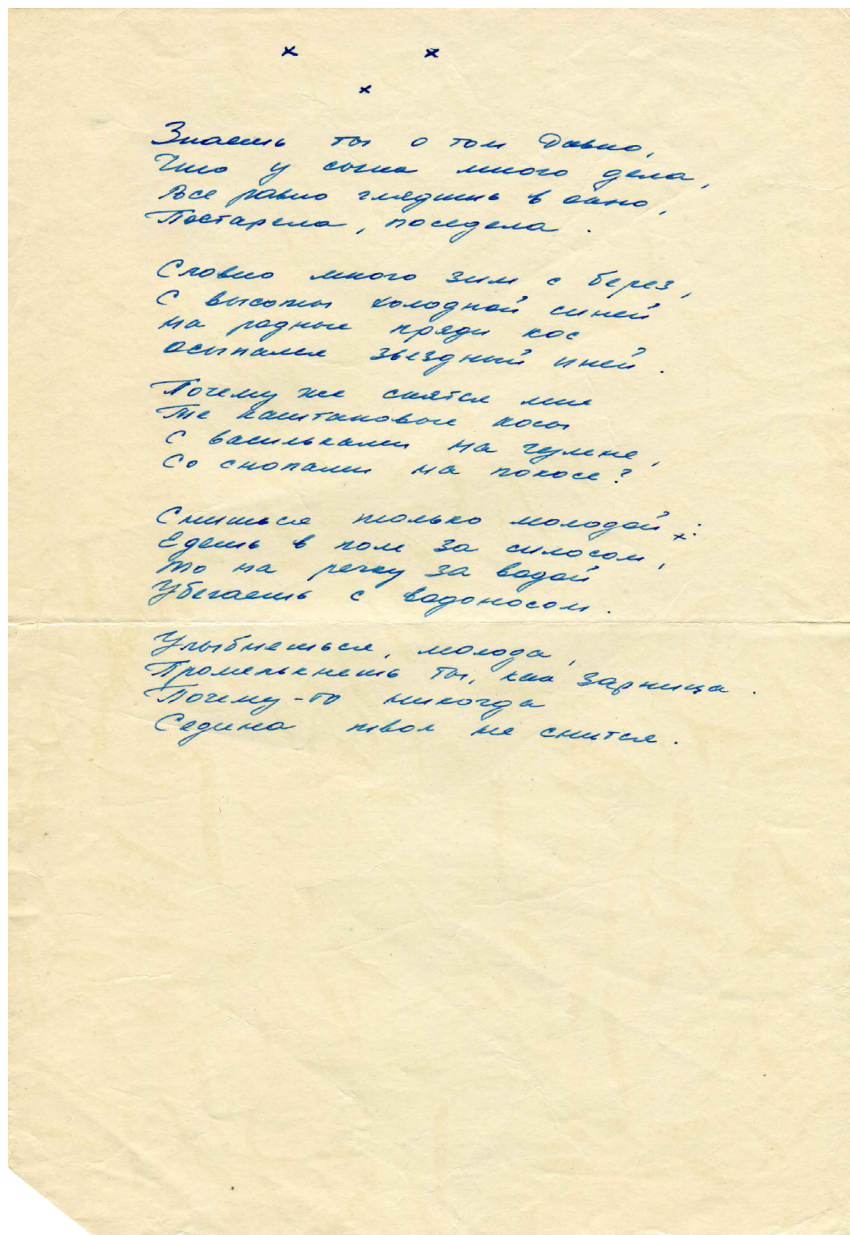 х х
х
Знаешь ты о том давно,
Что у сына много дела,
Все равно глядишь в окно,
Постарела, поседела.
Словно много зим с берез,
С высоты холодной синей
На родные пряди кос
Осыпался звездный иней.
Почему же снятся мне
Те каштановые косы
С васильками на гумне,
Со снопами на покосе?
Снишься только молодой:
Едешь в поле за силосом,
То на речку за водой
Убегаешь с водоносом.
Улыбнешься, молода,
Промелькнешь ты, как зарница.
Почему-то никогда
Седина твоя не снится.